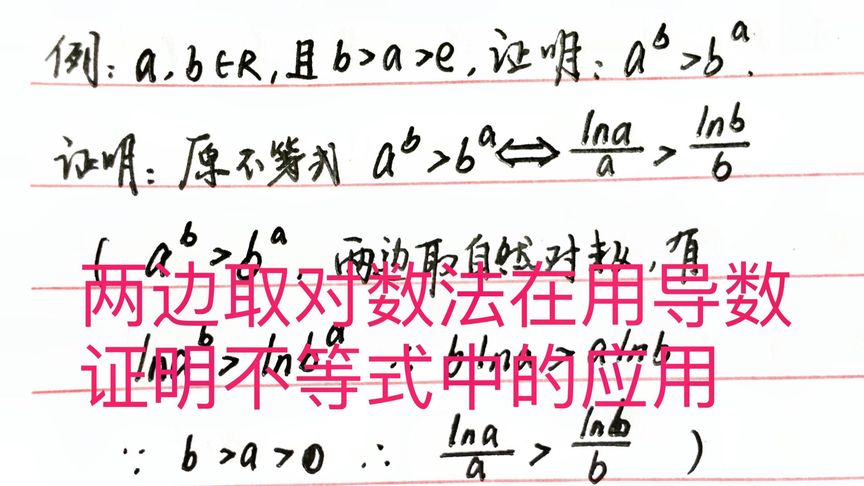 例：a，b∈R，且b>a>e，证明：a^b>b^a.
证明：原不等式 a^b>b^a⇔lna/a > lnb/b
( a^b>b^a，两边取自然对数，有
两边取对数法在用导数
lna^b>lnb^a ∴ blna>alnb
证明不等式中的应用
∵ b>a>0 ∴ lna/a > lnb/b )